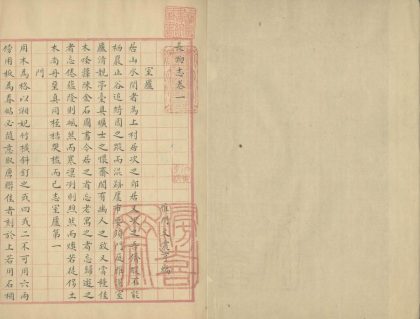 長物志卷一
雁門文震亨編
室廬
居山水間者為上村居次之郊居又次之吾儕縱不能
栖巖止谷追綺園之蹤而混跡廛市要須門庭雅潔室
廬清靚亭臺具曠士之懷齋閣有幽人之致又當種佳
木怪籜陳金石圖書令居之者忘老寓之者忘歸遊之
者忘倦蘊隆則颯然而寒凜冽則煦然而燠若徒侈土
木尚丹堊真同桎梏樊檻而已志室廬第一
門
用木為格以湘妃竹橫斜釘之或四或二不可用六兩
傍用板為春帖必隨意取唐聯佳者刻於上若用石梱